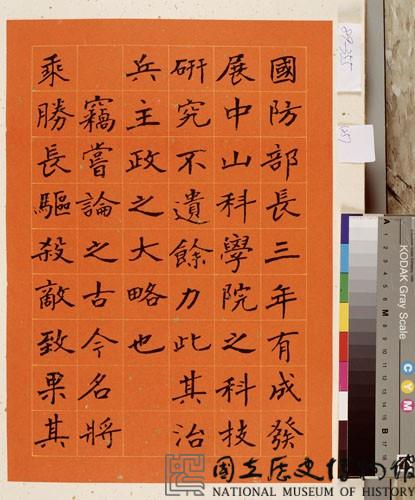 國防部長三年有成發
展中山科學院之科技
研究不遺餘力此其治
兵主政之大略也
竊嘗論之古今名將
乘勝長驅殺敵致果其
國立歷史博物館
NATIONAL MUSEUM OF HISTORY
89-355
KODAK Gray Scale
C Y M
A 1 2 3 4 5 6 M 8 9 10 11 12 13 14 15 B 17 18